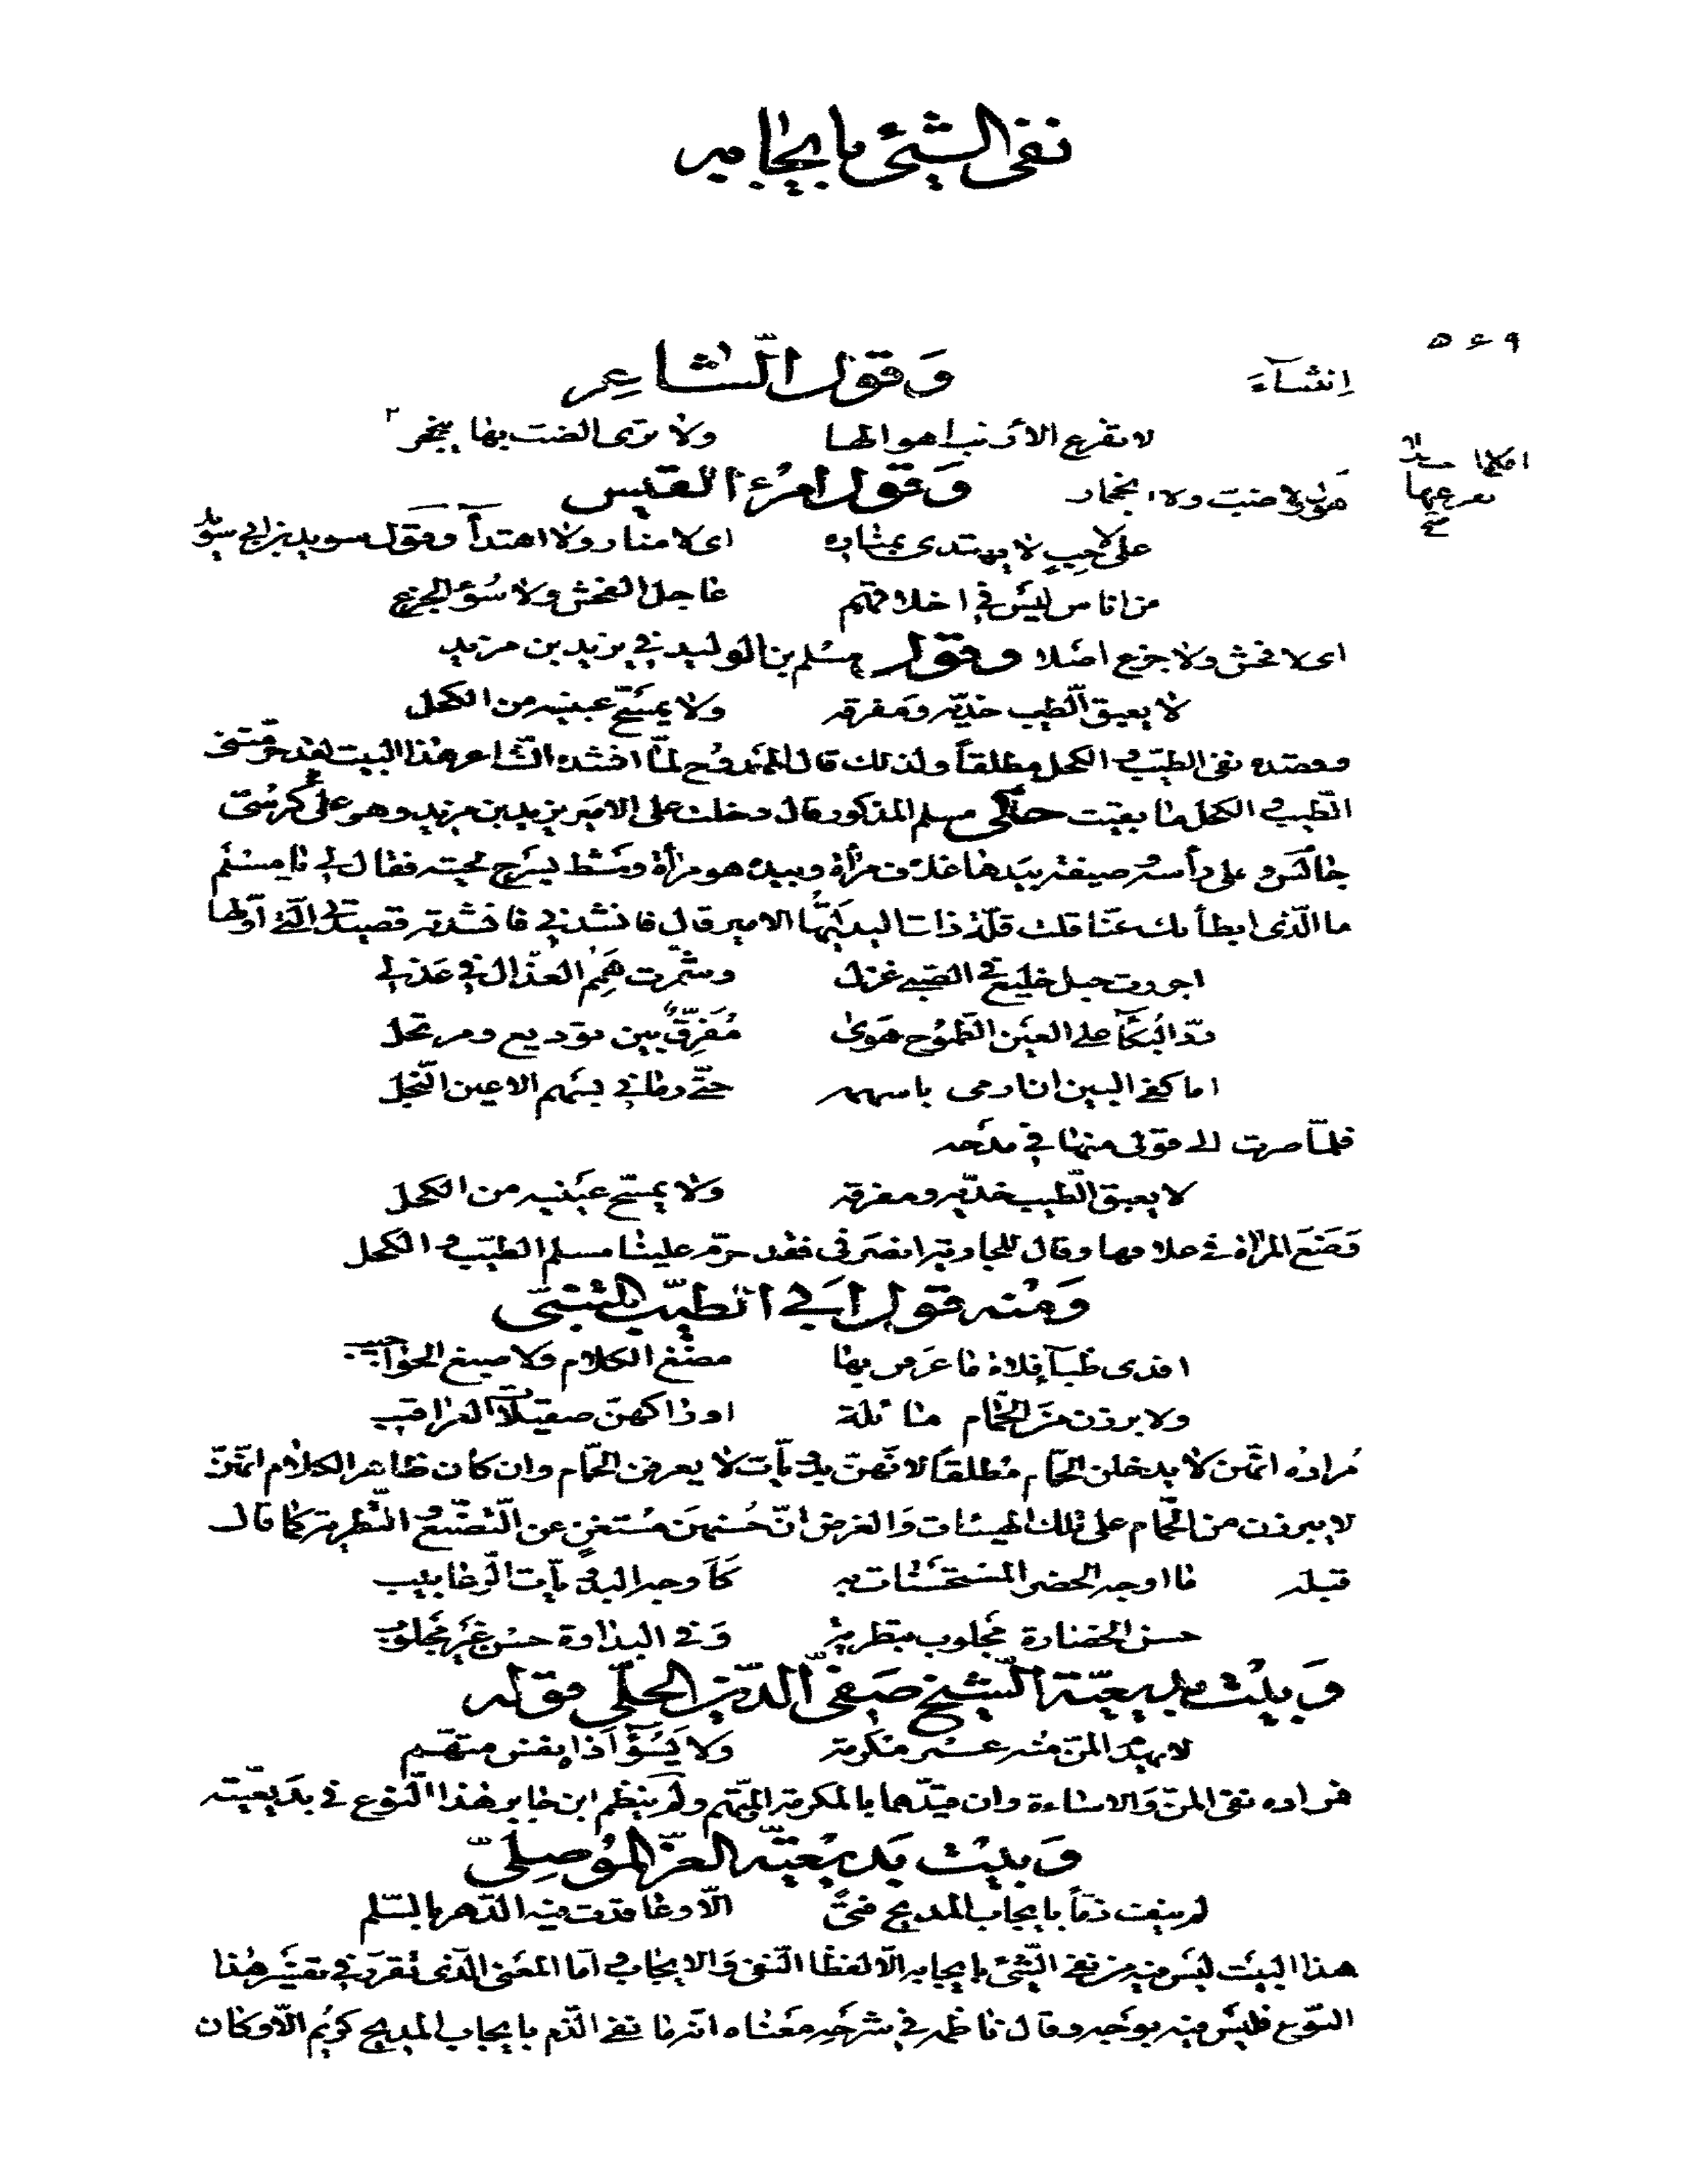 نفى الشيئ بايجابه
٥٤٩
إنشآءَ وَقول الشاعِر
لا تفزع الأرنب اهوالها ولا ترى الضب بها ينجحر
وَقول امرُء القيس
على لاحِبٍ لا يهتدى بمناره اى لا منار ولا اهتدآ وقول سويد بن ابي
من اناس ليسَ في اخلاقهم عاجل الفحش ولا سُوءُ الجزع
اى لا فحش ولا جزع اصَلا وقول مسُلم بن الوليد في يزيد بن مزيد
لا يعبق الطيب خديّه ومَفرقه ولا يمسّح عينيه من الكحل
وقصده نفى الطيّب والكحل مطلقاً ولذلك قال الممَدوُح لمّا انشده الشّاعر هٰذا البيت لقد حرّمتنى
الطّيب والكحل ما بقيت حكى مسلم المذكور قال دخلت على الامير يزيد بن مزيد وهو على كرسُيّ
جالس وعلى رأسه وصيفة بيَدها غلاف مرأة وبيده هو مرأة ومشط يسَرح لحيته فقال لي يا مسُلم
ما الّذى ابطأ بك عنّا قلت قلّة ذات اليد ايّهُا الامير قال فانشدني فانشدته قصيدتى الّتي اوّلها
اجررت حبل خليع في الصّبى غزل وشمّرت هِمَمُ العذّال في عَذلي
ردّ البُكآ على العيَن الطّموُح هَوىً مُفَرّقٌ بين توديع ومرتحل
اما كفى البين ان ارمى باسهمه حتّى رمانى بسَهم الاعين النّجل
فلمّا صرت الى قولى منها في مدَحه
لا يعبق الطّيب خدّيه ومفرقه ولا يمسّح عيَنيه من الكحل
وَضَعَ المرأة في غلافها وقال للجارية انصرفى فقد حرّم علينا مسلم الطيّب والكحل
وَمنه قول ابَي الطيّب المتنبّى
افدى ظبآء فلاة ما عَرفن بها مضغ الكلام وَلا صبغ الحواجيب
ولا برزن من الحمّام مائلة اوراكهنّ صقيلات العراقيب
مُراده انّهنّ لا يدخلن الحمّام مُطلقاً لانّهنّ بدَويّات لا يعرفن الحمّام وان كان ظاهر الكلام انّهنّ
لا يبرزن من الحمّام على تلك الهيئات وَالغرض انّ حسُنهنَ مسُتغنٍ عن التّصنّع والتّطرية كما قال
قبله ما اوجه الحضر المستحسَنات به كَاوجه البدَويّات الرّعابيب
حسن الحضارة مجَلوب بتطرية وَفى البداوة حسُن غيَر مجَلوب
وَبيت بديعيّة الشيخ صَفىّ الدّين الحلّي قوله
لا يهدم المنّ منُه عمُر مكرمة ولا يَسُوءُ اذاه نفس متّهَم
فمراده نفى المنّ وَالاساءة وان قيّدهما بالمكرمة والمتّهم ولم ينظم ابن جابر هٰذا النّوع في بدَيعيّته
وَبيت بَديعُيّة العزّ الموُصِلىّ
لم ينف ذمّاً بايجاب المديح فتىً الّا وعاقدت فيه الدّهر بالسّلم
هذا البيَت ليسَ فيه من نفى الشّئ بايجابه الّا لفظا النّفى وَالايجاب وامّا المعَنى الّذى تُقرّر في تفسيَر هٰذا
النّوع فليسَ فيه بوَجه وقال ناظمه في شرَحه معَناه انّه ما نفى الذّم بايجاب المديح كريُم الّا وكان